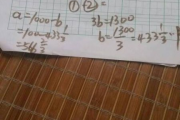 ①(2)=
a=1000-b 3b=1300
=1000-433 1/3 b=1300/3=433 1/3
=566 2/3